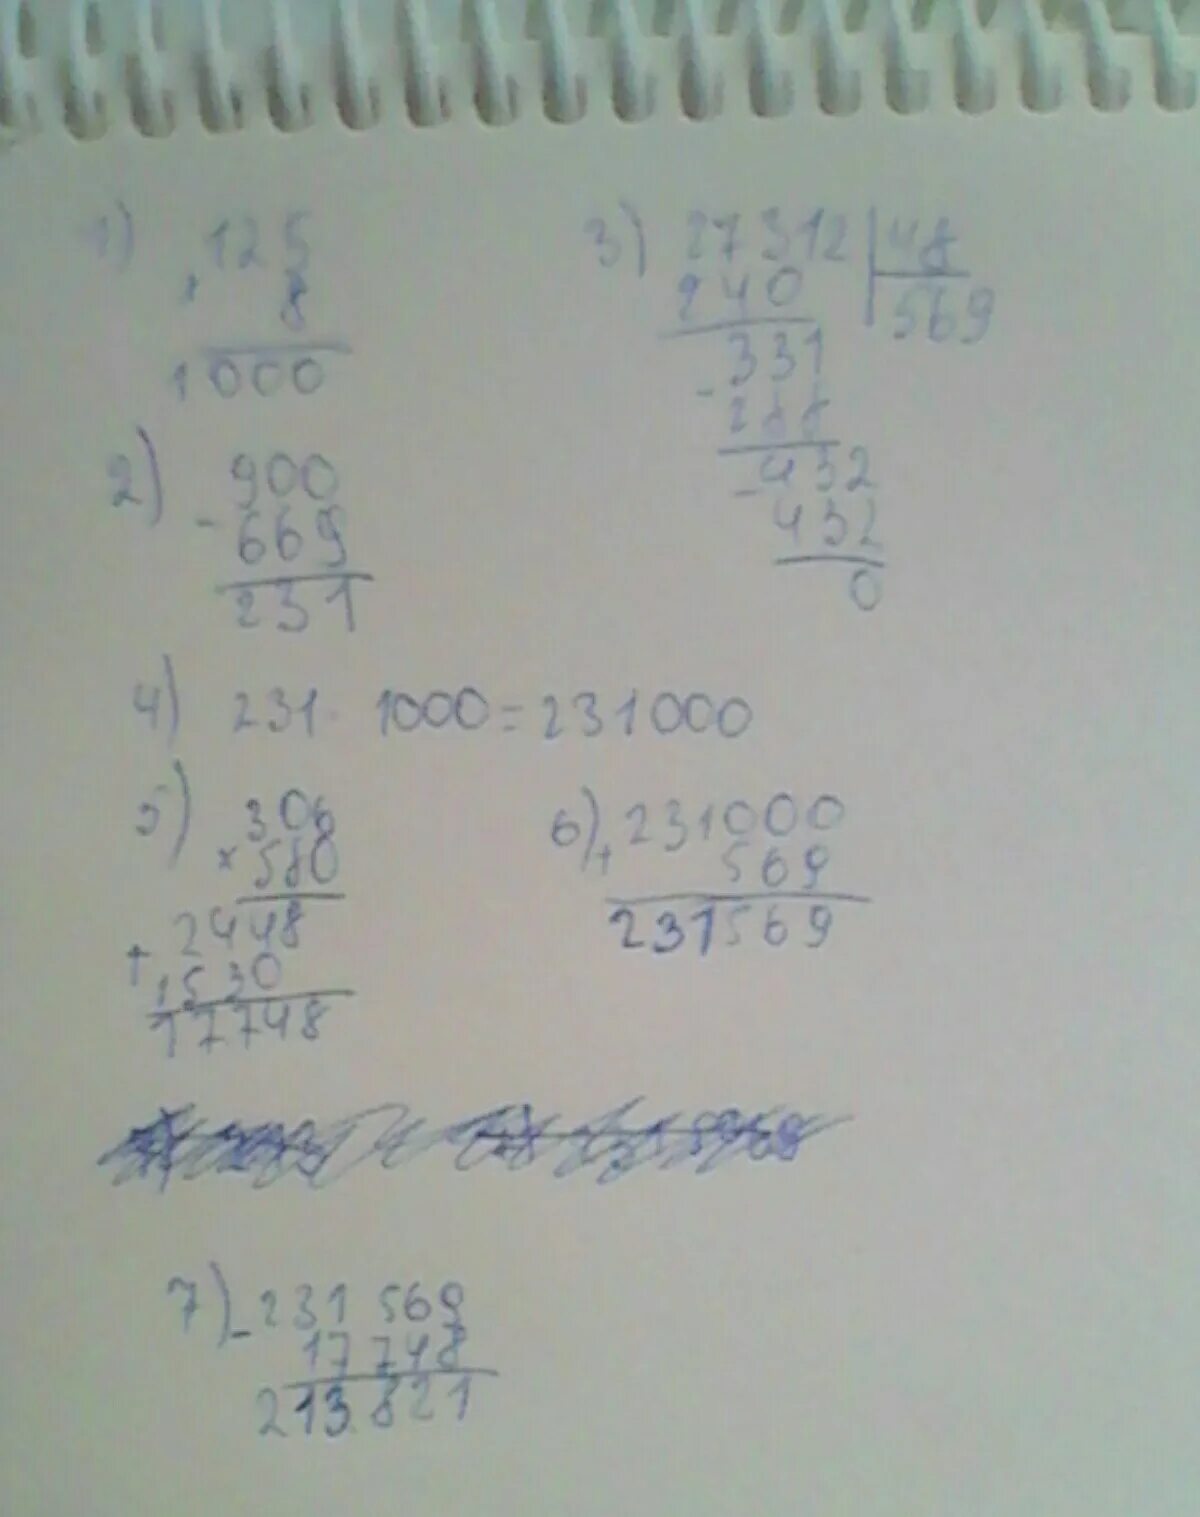 1) 125
× 8
1000
2) 900
- 669
231
3) 27312 | 48
240 | 569
331
- 288
- 432
432
0
4) 231 · 1000 = 231000
5) 306
× 580
2448
+ 1530
17748
6) 231000
+ 569
231569
7) - 231 569
17 748
213.821